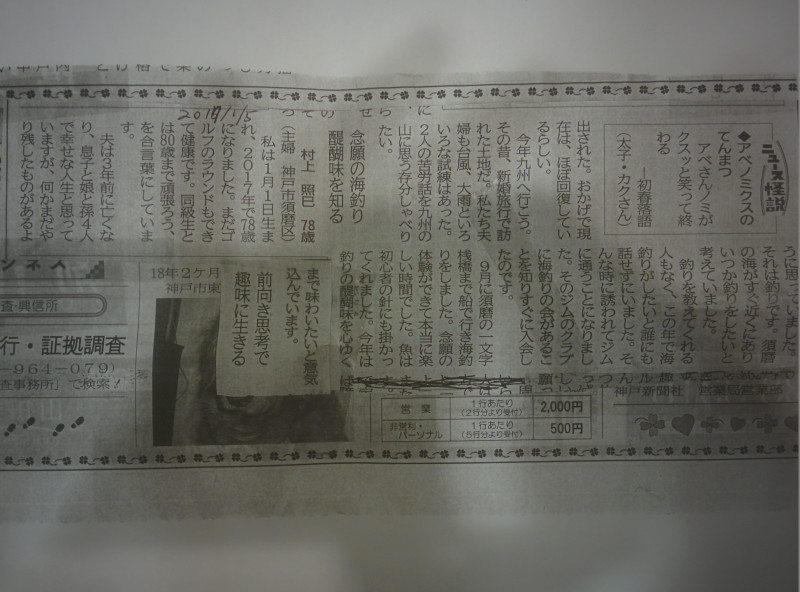 ニュース怪説
◆アベノミクスの
てんまつ
アベさんノミが
クスッと笑って終
わる
―初春落語
(太子・カクさん)
出された。おかげで現
在は、ほぼ回復してい
るらしい。
今年九州へ行こう。
その昔、新婚旅行で訪
れた土地だ。私たち夫
婦も台風、大雨といろ
いろな試練はあった。
2人の苦労話を九州の
山に思う存分しゃべり
たい。
念願の海釣り
醍醐味を知る
村上 照巳 78歳
(主婦 神戸市須磨区)
私は1月1日生ま
れ、2017年で78歳
になりました。まだゴ
ルフのラウンドもでき
て健康です。同級生と
は80歳まで頑張ろう、
を合言葉にしていま
す。
夫は3年前に亡くな
り、息子と娘と孫4人
で幸せな人生と思って
いますが、何かまだや
り残したものがあるよ
うに思っていました。
それは釣りです。須磨
の海がすぐ近くにあり
いつか釣りをしたいと
考えていました。
釣りを教えてくれる
人もなく、この年で海
釣りがしたいと誰にも
話せずにいました。そ
んな時に誘われてジム
に通うことになりまし
た。そのジムのクラブ
に海釣りの会があるこ
とを知りすぐに入会し
たのです。
9月に須磨の一文字
桟橋まで船で行き海釣
りをしました。念願の
体験ができて本当に楽
しい時間でした。魚は
初心者の針にも掛かっ
てくれました。今年は
釣りの醍醐味を心ゆく
まで味わいたいと意気
込んでいます。
前向き思考で
趣味に生きる
18年2ケ月
神戸市東
査・興信所
行・証拠調査
-964-079)
査事務所」で検索!
神戸新聞社 営業局営業部
営業 1行あたり (2行分より受付) 2,000円
非営利・パーソナル 1行あたり (5行分より受付) 500円